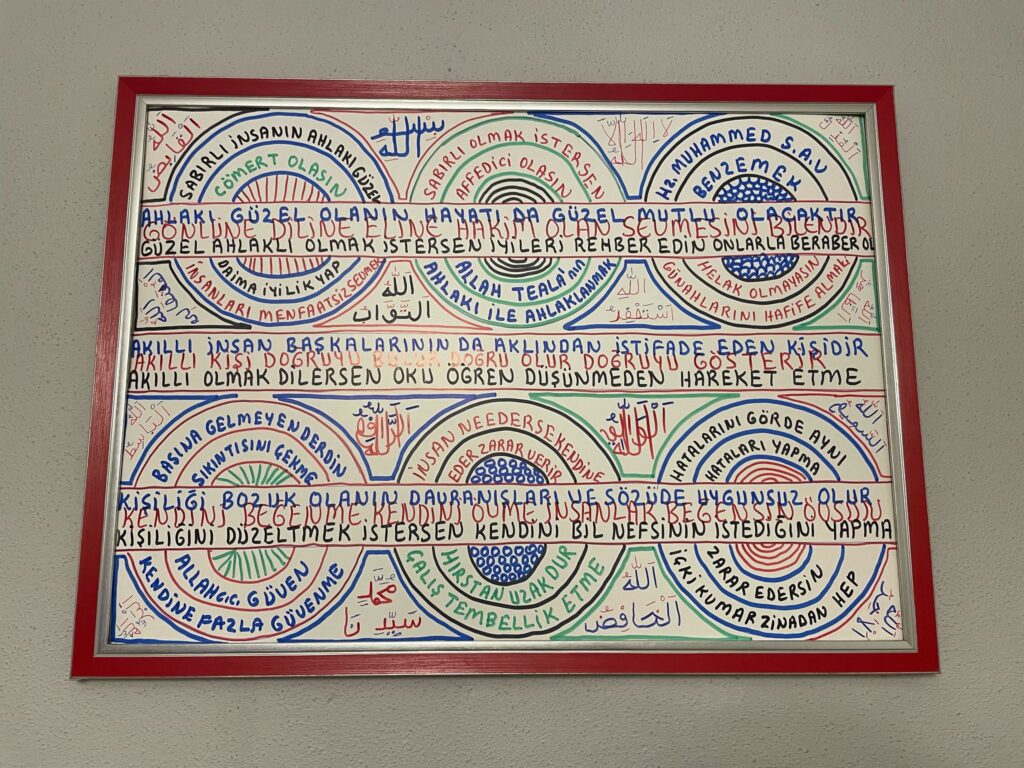 الله القابض
SABIRLI İNSANIN AHLAKI GÜZEL
CÖMERT OLASIN
بسم الله
SABIRLI OLMAK İSTERSEN
AFFEDİCİ OLASIN
لا اله الا الله
HZ. MUHAMMED S.A.V
BENZEMEK
الله
AHLAKI GÜZEL OLANIN HAYATI DA GÜZEL MUTLU OLACAKTIR
GÖNLÜNE DİLİNE ELİNE HAKİM OLAN SEVMESİNİ BİLENDİR
GÜZEL AHLAKLI OLMAK İSTERSEN İYİLERİ REHBER EDİN ONLARLA BERABER OL
DAİMA İYİLİK YAP
İNSANLARI MENFAATSİZ SEDMEK
الله
التَّوَّاب
ALLAH TEALA'nın
AHLAKI İLE AHLAKLANMAK
الله
استغفر
HELAK OLMAYASIN
GÜNAHLARINI HAFİFE ALMA
AKILLI İNSAN BAŞKALARININ DA AKLINDAN İSTİFADE EDEN KİŞİDİR
AKILLI KİŞİ DOĞRUYU BULUR DOĞRU OLUR DOĞRUYU GÖSTERİR
AKILLI OLMAK DİLERSEN OKU ÖĞREN DÜŞÜNMEDEN HAREKET ETME
الله الباسط
BASINA GELMEYEN DERDİN
SIKINTISINI ÇEKME
İNSAN NE EDERSE KENDİNE
EDER ZARAR VERİR
HATALARINI GÖRDE AYNI
HATALARI YAPMA
الله
السميع
KİŞİLİĞİ BOZUK OLANIN DAVRANIŞLARI VE SÖZÜDE UYGUNSUZ OLUR
KENDİNİ BEĞENME KENDİNİ ÖVME İNSANLAR BEĞENSİN ÖVSÜN
KİŞİLİGİNİ DÜZELTMEK İSTERSEN KENDİNİ BİL NEFSİNİN İSTEDİĞİNİ YAPMA
ALLAH C.C. GÜVEN
KENDİNE FAZLA GÜVENME
محمد
سيدنا
HIRSTAN UZAK DUR
ÇALIŞ TEMBELLİK ETME
الله
الخافض
ZARAR EDERSİN
İÇKİ KUMAR ZİNADAN HEP